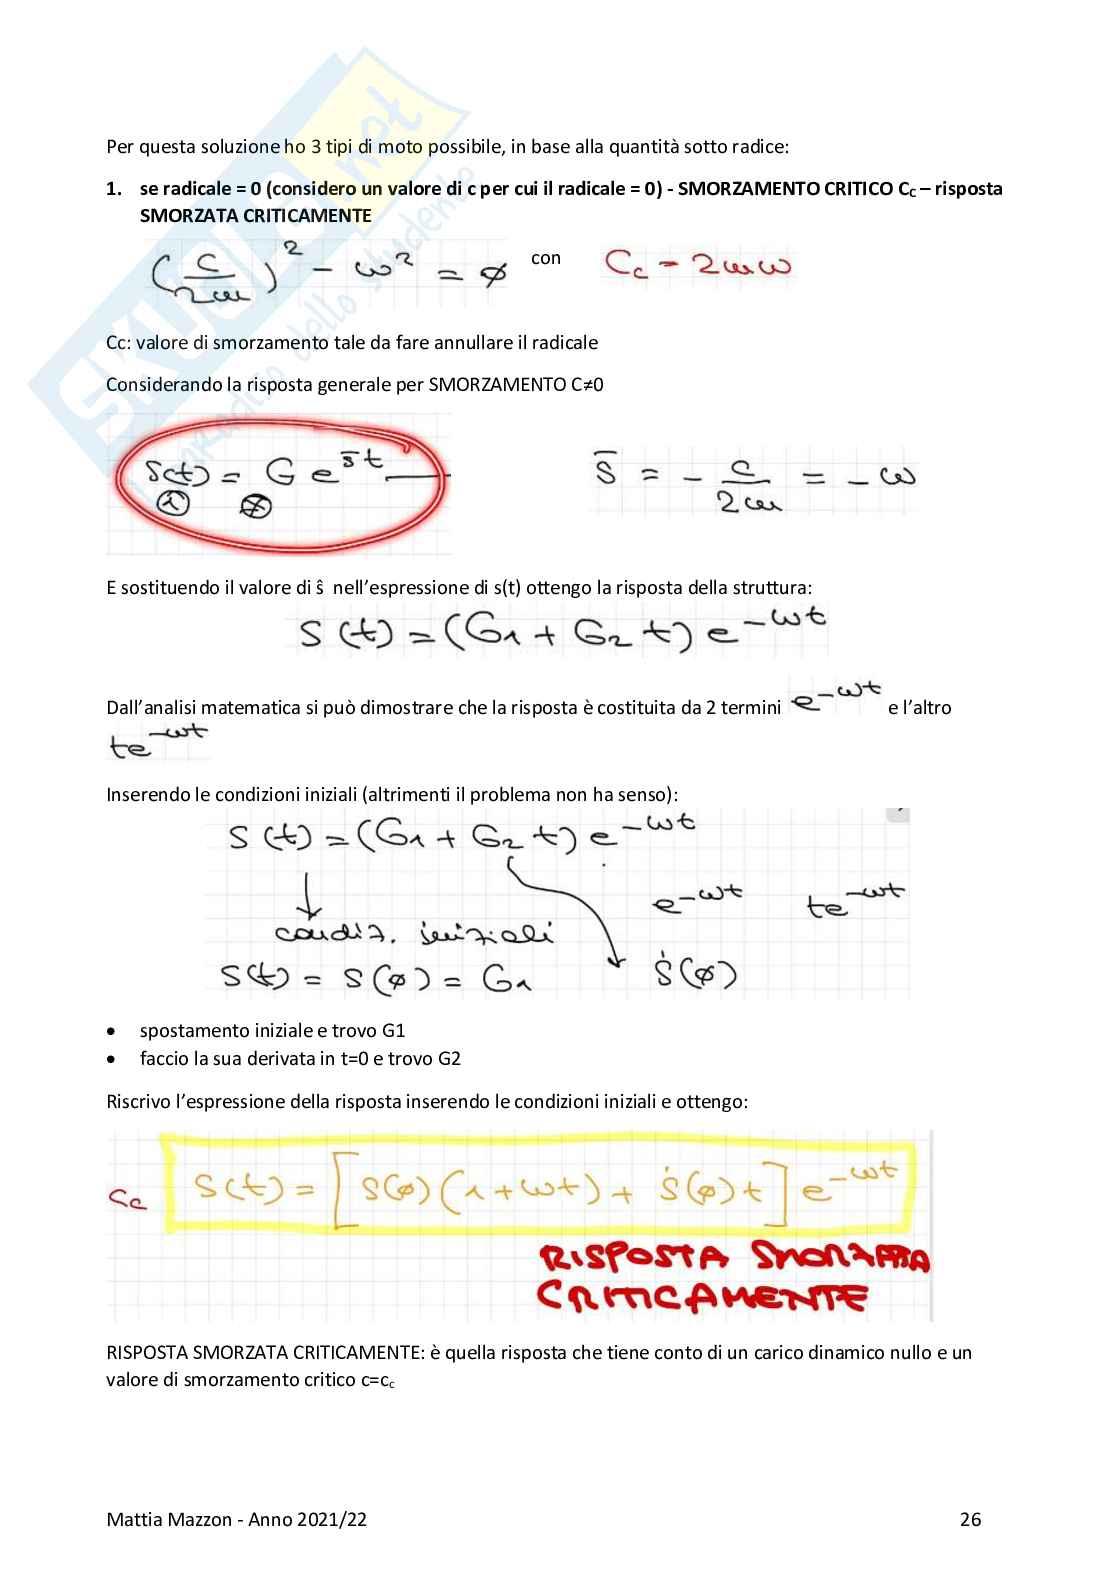 Per questa soluzione ho 3 tipi di moto possibile, in base alla quantità sotto radice:
1. se radicale = 0 (considero un valore di c per cui il radicale = 0) - SMORZAMENTO CRITICO Cc – risposta
SMORZATA CRITICAMENTE
(c/2m)² - ω² = ø con Cc = 2mω
Cc: valore di smorzamento tale da fare annullare il radicale
Considerando la risposta generale per SMORZAMENTO C≠0
S(t) = G e^s̄t s̄ = - c/2m = - ω
E sostituendo il valore di ŝ nell'espressione di s(t) ottengo la risposta della struttura:
S(t) = (G1 + G2 t) e^-ωt
Dall'analisi matematica si può dimostrare che la risposta è costituita da 2 termini e^-ωt e l'altro
te^-ωt
Inserendo le condizioni iniziali (altrimenti il problema non ha senso):
S(t) = (G1 + G2 t) e^-ωt
e^-ωt te^-ωt
condiz. iniziali
S(t) = S(ø) = G1 Ṡ(ø)
• spostamento iniziale e trovo G1
• faccio la sua derivata in t=0 e trovo G2
Riscrivo l'espressione della risposta inserendo le condizioni iniziali e ottengo:
Cc S(t) = [S(ø)(1+ωt) + Ṡ(ø)t] e^-ωt
RISPOSTA SMORZATA
CRITICAMENTE
RISPOSTA SMORZATA CRITICAMENTE: è quella risposta che tiene conto di un carico dinamico nullo e un
valore di smorzamento critico c=cc
Mattia Mazzon - Anno 2021/22 26